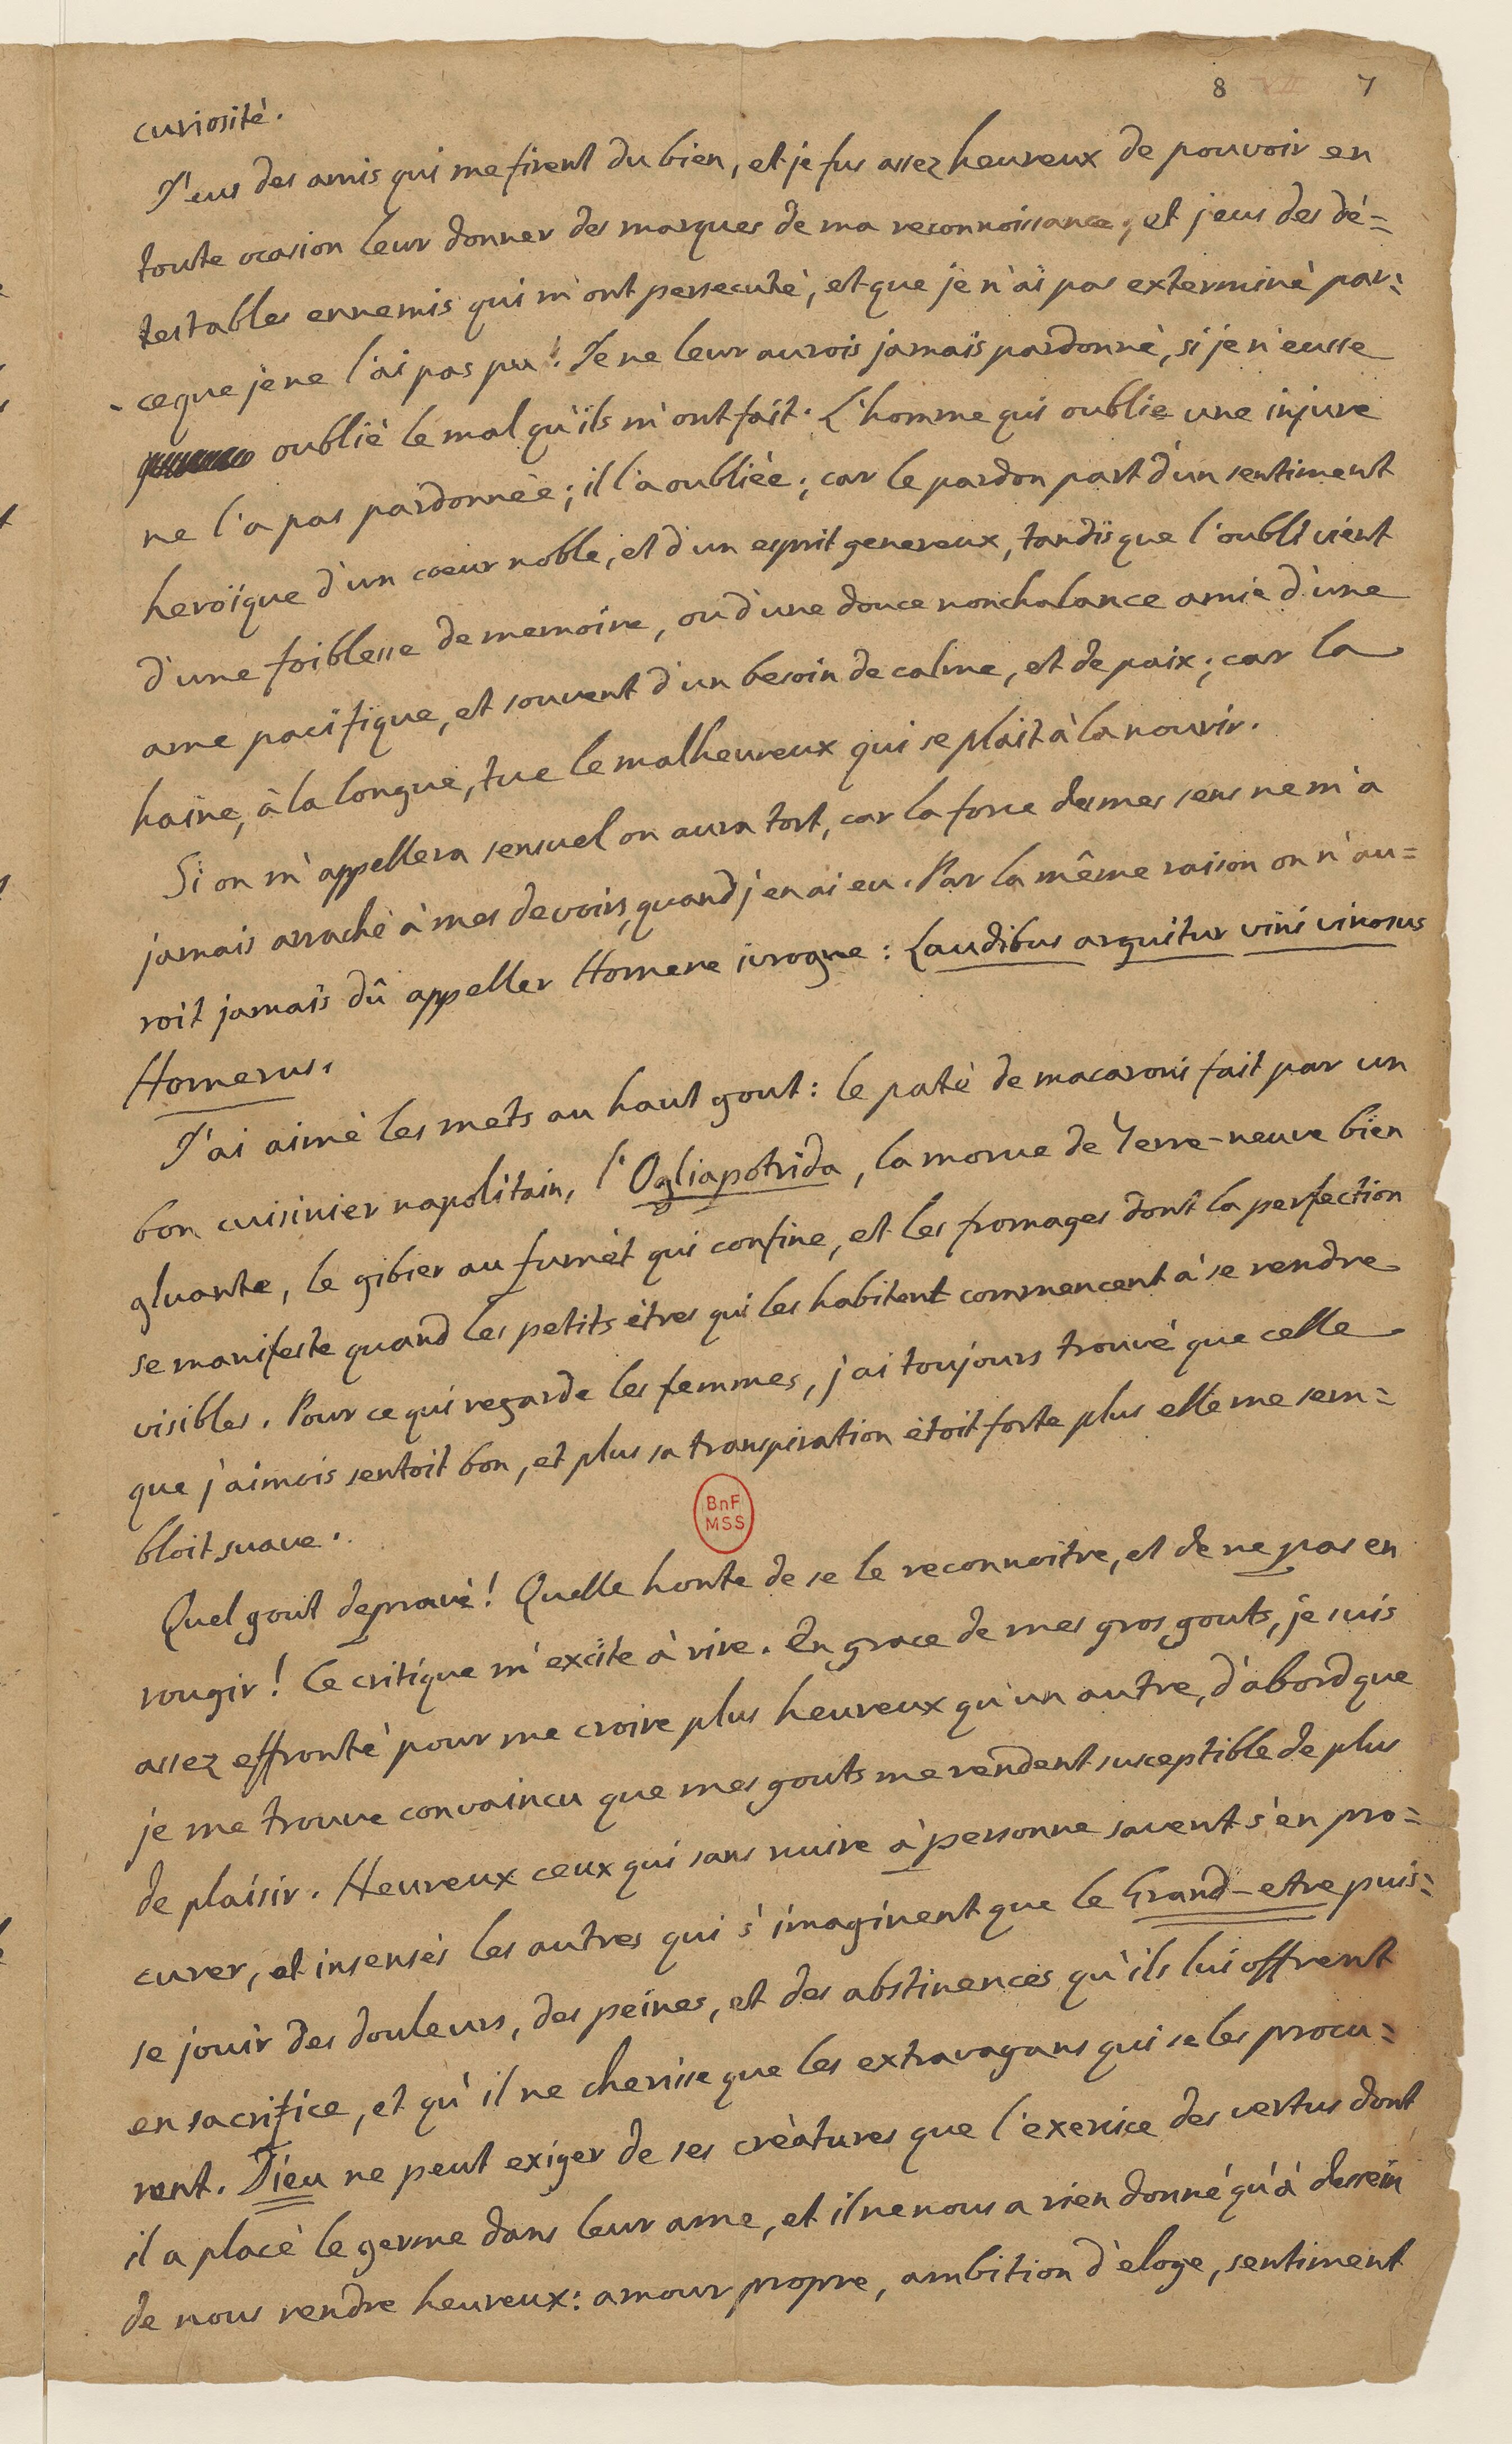 8 VII 7
curiosité.
J'eus des amis qui me firent du bien, et je fus assez heureux de pouvoir en
toute ocasion leur donner des marques de ma reconnoissance, et j'eus des dé=
testables ennemis qui m'ont persecuté, et que je n'ai pas exterminé par=
ceque je ne l'ai pas pu. Je ne leur aurois jamais pardonné, si je n'eusse
oublié le mal qu'ils m'ont fait. L'homme qui oublie une injure
ne l'a pas pardonnée; il l'a oubliée; car le pardon part d'un sentiment
heroïque d'un coeur noble, et d'un esprit genereux, tandis que l'oubli vient
d'une foiblesse de memoire, ou d'une douce nonchalance amie d'une
ame pacifique, et souvent d'un besoin de calme, et de paix; car la
haine, à la longue, tue le malheureux qui se plait à la nourir.
Si on m'appellera sensuel on aura tort, car la force de mes sens ne m'a
jamais arraché à mes devoirs quand j'en ai eu. Par la même raison on n'au=
roit jamais dû appeller Homere ivrogne: Laudibus arguitur vini vinosus
Homerus.
J'ai aimé les mets au haut gout: le paté de macaroni fait par un
bon cuisinier napolitain, l'Ogliapotrida, la morue de Terre-neuve bien
gluante, le gibier au fumèt qui confine, et les fromages dont la perfection
se manifeste quand les petits êtres qui les habitent commencent à se rendre
visibles. Pour ce qui regarde les femmes, j'ai toujours trouvé que celle
que j'aimois sentoit bon, et plus sa transpiration étoit forte plus elle me sem=
bloit suave.
BnF
MSS
Quel gout depravé! Quelle honte de se le reconnoitre, et de ne pas en
rougir! Ce critique m'excite à rire. En grace de mes gros gouts, je suis
assez effronté pour me croire plus heureux qu'un autre, d'abord que
je me trouve convaincu que mes gouts me rendent susceptible de plus
de plaisir. Heureux ceux qui sans nuire à personne savent s'en pro=
curer, et insensés les autres qui s'imaginent que le Grand-etre puis=
se jouir des douleurs, des peines, et des abstinences qu'ils lui offrent
en sacrifice, et qu'il ne cherisse que les extravagans qui se les procu=
rent. Dieu ne peut exiger de ses créatures que l'exercice des vertus dont
il a placé le germe dans leur ame, et il ne nous a rien donné qu'à dessein
de nous rendre heureux: amour propre, ambition d'eloge, sentiment